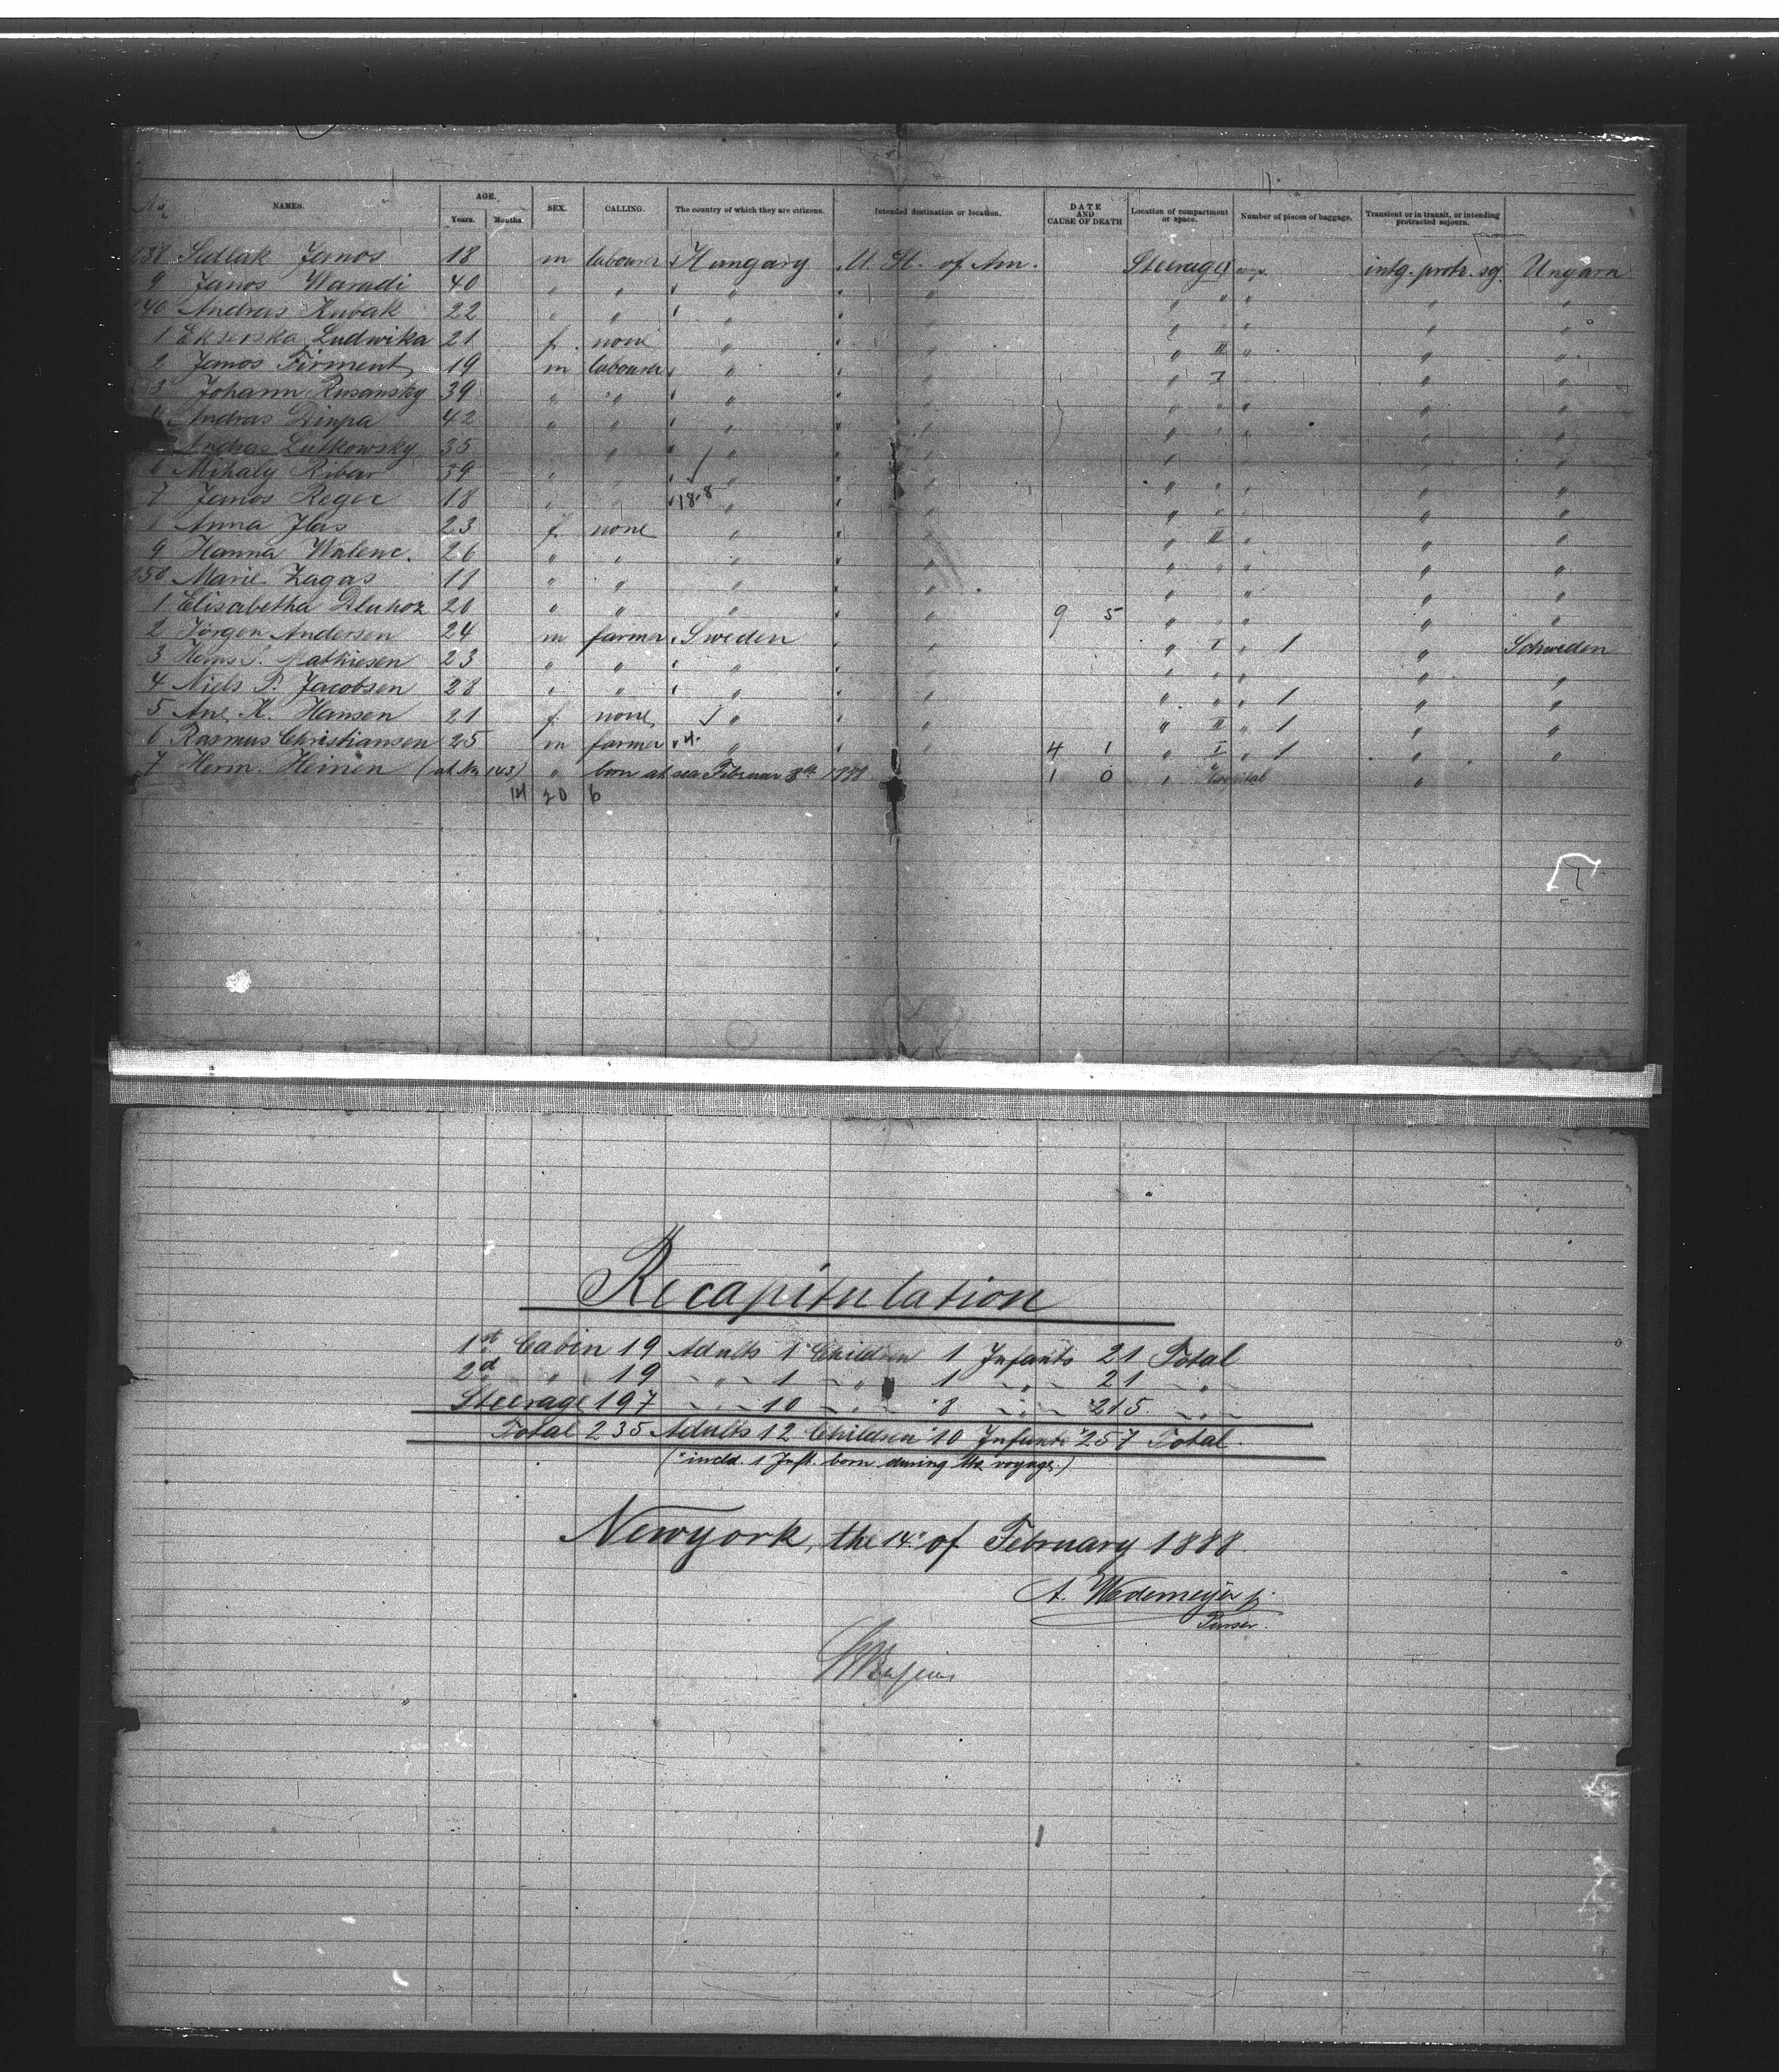 No. NAMES. AGE. Years. Months. SEX. CALLING. The country of which they are citizens. Intended destination or location. DATE AND CAUSE OF DEATH Location of compartment or space. Number of pieces of baggage. Transient or in transit, or intending protracted sojourn.
238 Sedlak Janos 18 m labourer Hungary U. St. of Am. Steerage I intg. protr. sg. Ungarn
9 Janos Waradi 40 " " " " " " " " "
240 Andras Kubak 22 " " " " " " " " "
1 Ekserska Ludwika 21 f. none " " " II " " "
2 Janos Firment 19 m labourer " " " I " "
3 Johann Rusansky 39 " " " " " " " " "
4 Andras Dinpa 42 " " " " " " " " "
Andras Lutkowsky 35 " " " " " " "
6 Mihaly Ribar 39 " " " " " " " " "
7 Janos Reger 18 " " 18.8 " " " " " " "
Anna Ilas 23 f. none " " " II " " "
9 Hanna Walenc. 26 " " " " " " " " "
250 Marie Zagas 18 " " " " " " " "
1 Elisabetha Dluhoz 20 " " " " 9 5 " " " " "
2 Jörgen Andersen 24 m farmer Sweden " " I " 1 " Schweden
3 Hans P. Mathiesen 23 " " " " " " " " "
4 Niels P. Jacobsen 28 " " " " " " " 1 " "
5 Ane K. Hansen 21 f. none " " " II " 1 " "
6 Rasmus Christiansen 25 m farmer " " 4 1 " I " 1 " "
7 Herm. Heinen (at No 143) " born at sea Februar 8th 1888 1 0 " Hospital "
20 6
Recapitulation
1st Cabin 19 Adults 1 Children 1 Infants 21 Total
2d " 19 " 1 " 1 " 21 "
Steerage 197 " 10 " *8 " 215 "
Total 235 Adults 12 Children *10 Infants *257 Total.
(*incld. 1 Inft. born during the voyage.)
Newyork, the 14th of February 1888.
A. Wedemeijer jr.
Purser.